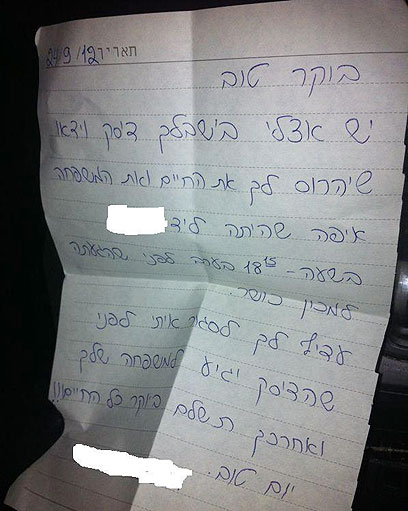 תאריך 24/9/12
בוקר טוב
יש אצלי בישבלך דיסק וידאו
שיהרוס לך את החיים ואת המשפחה
איפה שהיתה ליד
בשעה - 18¹⁵ בערב לפני שהגעתה
למכון כושר.
עדיף לך לסגור איתי לפני
שהדיסק יגיע למשפחה שלך
ואחרכך תשלם ביוקר כל החיים!!!
יום טוב.